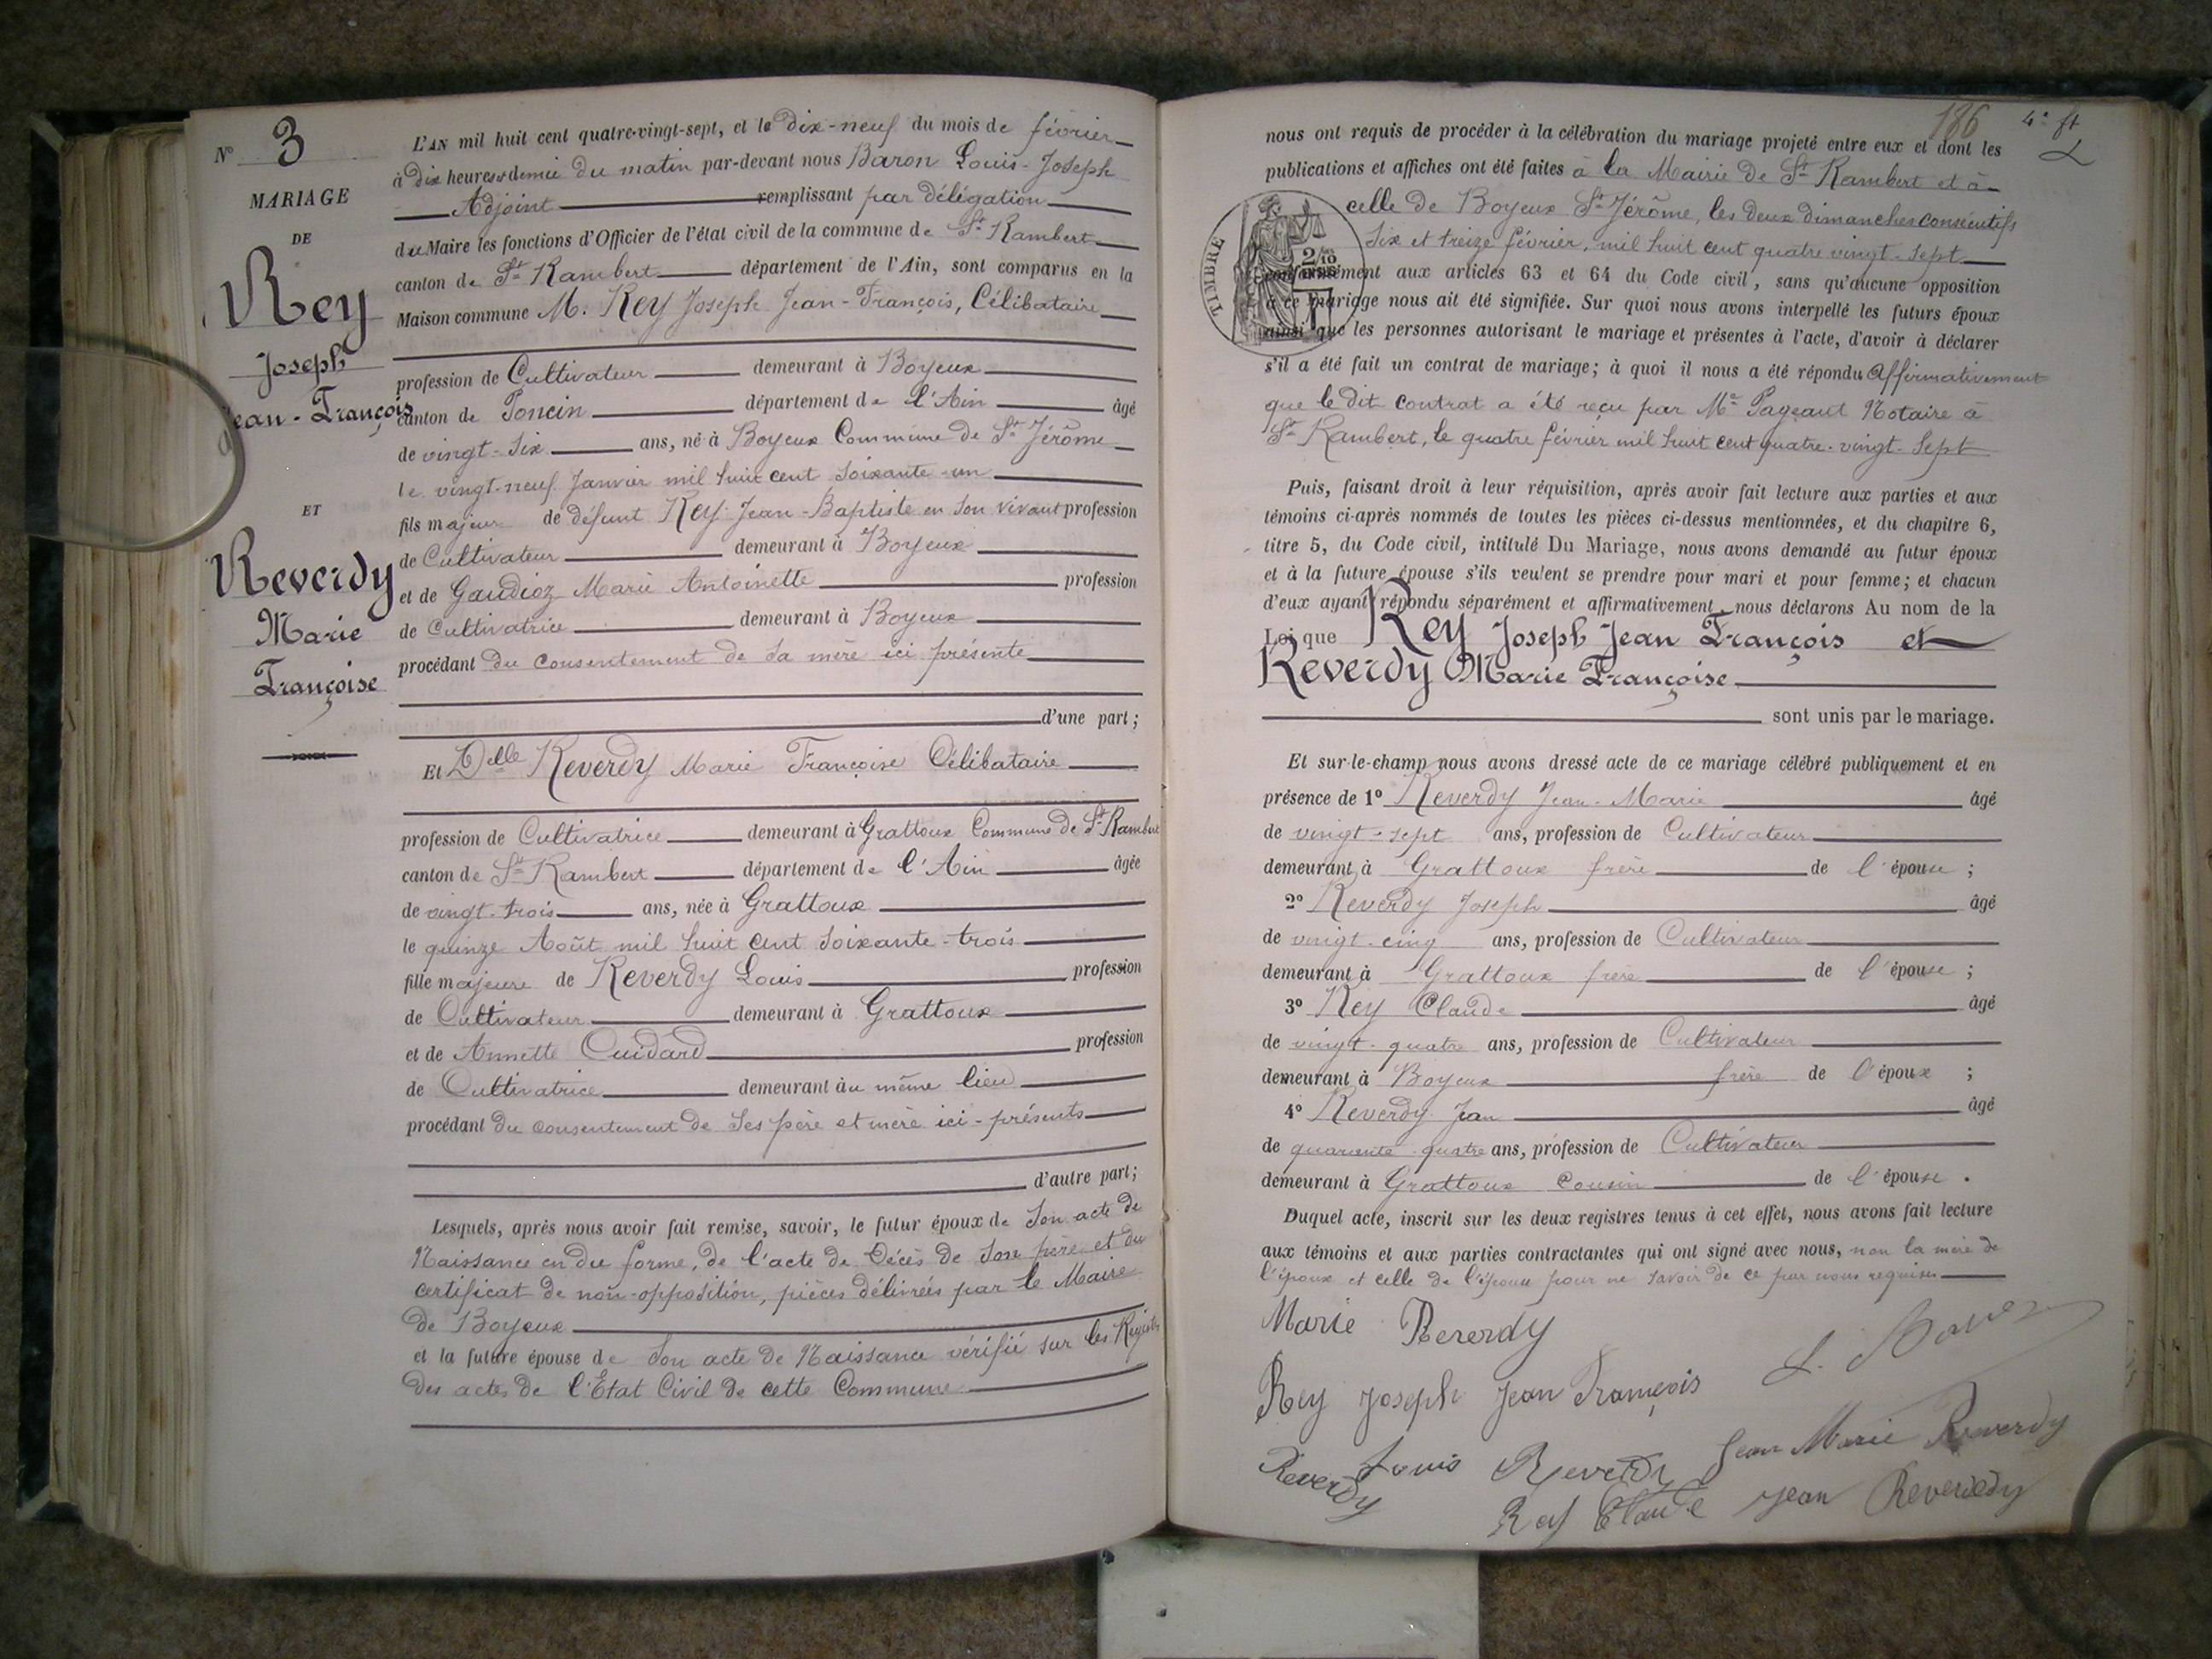 N° 3
MARIAGE
DE
Rey
Joseph
Jean-François
ET
Reverdy
Marie
Françoise
L'AN mil huit cent quatre-vingt-sept, et le dix-neuf du mois de février
à dix heures et demie du matin par-devant nous Baron Louis-Joseph
Adjoint remplissant par délégation
du Maire les fonctions d'Officier de l'état civil de la commune de St Rambert
canton de St Rambert département de l'Ain, sont comparus en la
Maison commune M. Rey Joseph Jean-François, Célibataire
profession de Cultivateur demeurant à Boyeux
canton de Poncin département de l'Ain âgé
de vingt-six ans, né à Boyeux Commune de St Jérôme
le vingt-neuf Janvier mil huit cent soixante-un
fils majeur de défunt Rey Jean-Baptiste en son vivant profession
de Cultivateur demeurant à Boyeux
et de Gaudioz Marie Antoinette profession
de Cultivatrice demeurant à Boyeux
procédant du consentement de sa mère ici présente
d'une part;
Et Delle Reverdy Marie Françoise Célibataire
profession de Cultivatrice demeurant à Grattoux Commune de St Rambert
canton de St Rambert département de l'Ain âgée
de vingt-trois ans, née à Grattoux
le quinze Août mil huit cent soixante-trois
fille majeure de Reverdy Louis profession
de Cultivateur demeurant à Grattoux
et de Annette Cuidard profession
de Cultivatrice demeurant au même lieu
procédant du consentement de ses père et mère ici-présents
d'autre part;
Lesquels, après nous avoir fait remise, savoir, le futur époux de son acte de
Naissance en due forme, de l'acte de Décès de son père et du
certificat de non-opposition, pièces délivrées par le Maire
de Boyeux
et la future épouse de son acte de Naissance vérifié sur les Registres
des actes de l'Etat Civil de cette Commune
186 4e ft
nous ont requis de procéder à la célébration du mariage projeté entre eux et dont les
publications et affiches ont été faites à la Mairie de St Rambert et à
celle de Boyeux St Jérôme, les deux dimanches consécutifs
six et treize février, mil huit cent quatre vingt-sept
TIMBRE
conformément aux articles 63 et 64 du Code civil, sans qu'aucune opposition
à ce mariage nous ait été signifiée. Sur quoi nous avons interpellé les futurs époux
ainsi que les personnes autorisant le mariage et présentes à l'acte, d'avoir à déclarer
s'il a été fait un contrat de mariage; à quoi il nous a été répondu affirmativement
que le dit contrat a été reçu par Me Pageaut Notaire à
St Rambert, le quatre février mil huit cent quatre-vingt-sept
Puis, faisant droit à leur réquisition, après avoir fait lecture aux parties et aux
témoins ci-après nommés de toutes les pièces ci-dessus mentionnées, et du chapitre 6,
titre 5, du Code civil, intitulé Du Mariage, nous avons demandé au futur époux
et à la future épouse s'ils veulent se prendre pour mari et pour femme; et chacun
d'eux ayant répondu séparément et affirmativement, nous déclarons Au nom de la
Loi que Rey Joseph Jean François et
Reverdy Marie Françoise
sont unis par le mariage.
Et sur-le-champ nous avons dressé acte de ce mariage célébré publiquement et en
présence de 1° Reverdy Jean-Marie âgé
de vingt-sept ans, profession de Cultivateur
demeurant à Grattoux frère de l'épouse;
2° Reverdy Joseph âgé
de vingt-cinq ans, profession de Cultivateur
demeurant à Grattoux frère de l'épouse;
3° Rey Claude âgé
de vingt-quatre ans, profession de Cultivateur
demeurant à Boyeux frère de l'époux;
4° Reverdy Jean âgé
de quarante-quatre ans, profession de Cultivateur
demeurant à Grattoux cousin de l'épouse.
Duquel acte, inscrit sur les deux registres tenus à cet effet, nous avons fait lecture
aux témoins et aux parties contractantes qui ont signé avec nous, non la mère de
l'époux et celle de l'épouse pour ne savoir de ce par nous requises
Marie Reverdy
L. Baron
Rey Joseph Jean François
Louis Reverdy Jean Marie Reverdy
Reverdy
Rey Claude Jean Reverdy